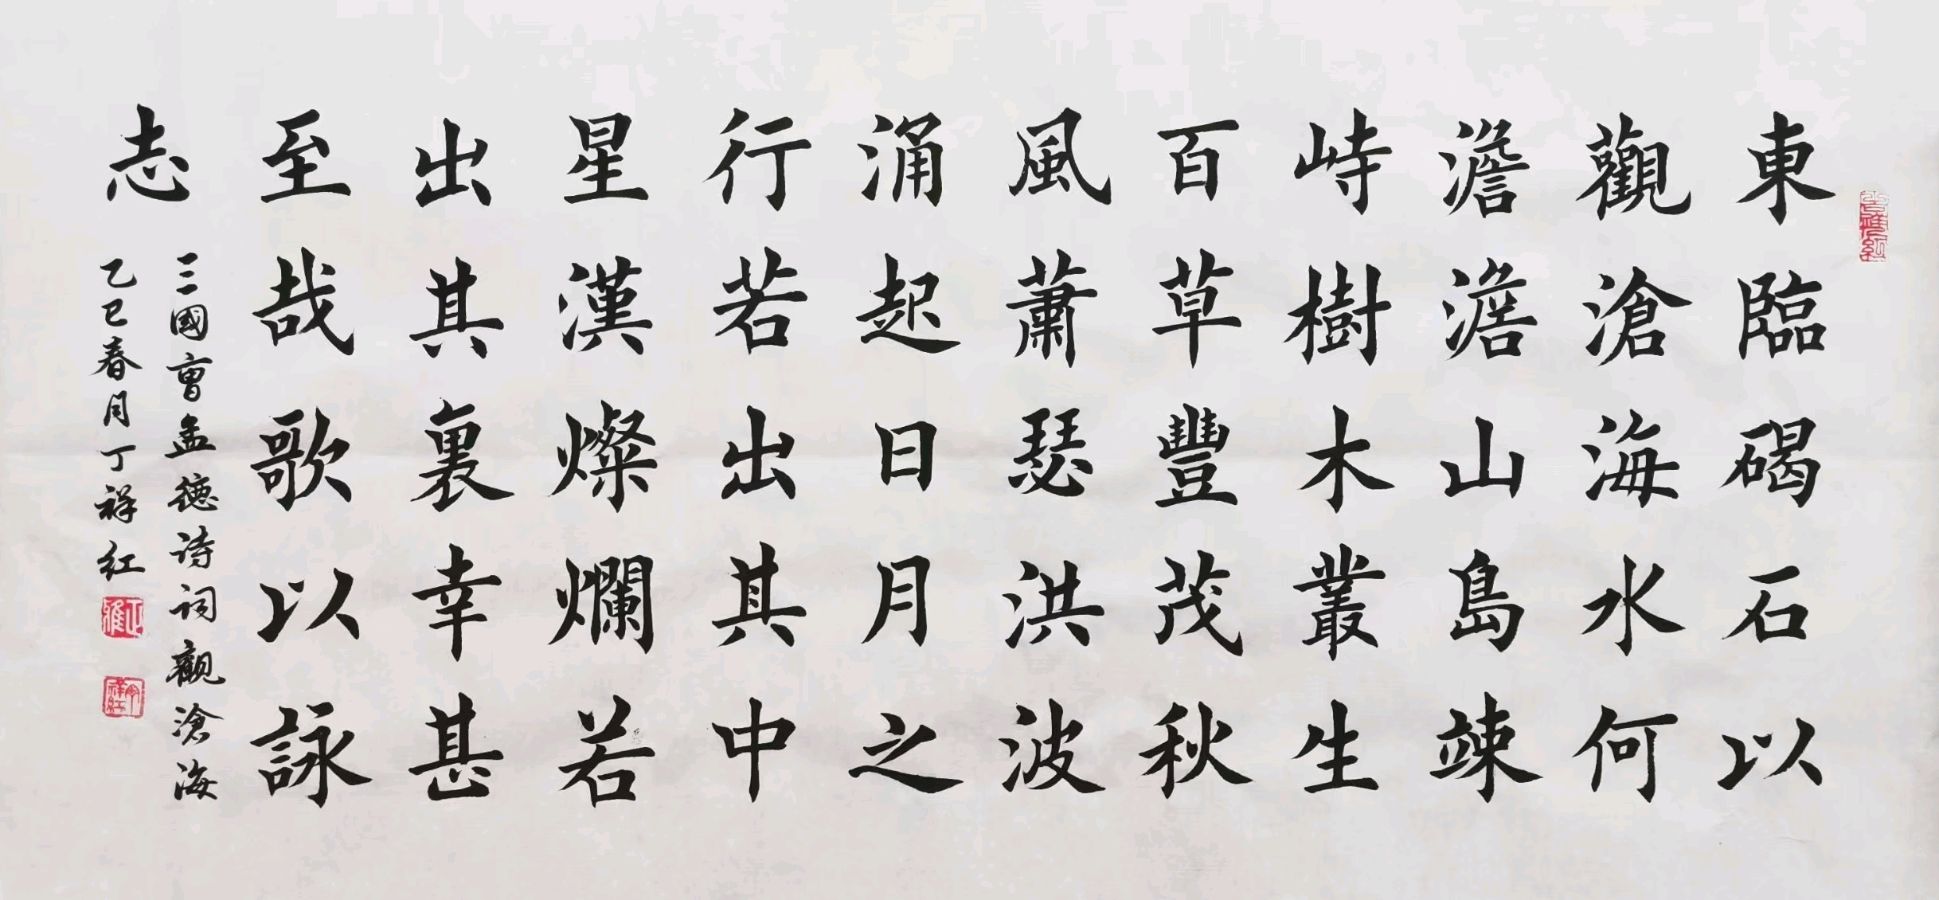 東臨碣石以
觀滄海水何
澹澹山島竦
峙樹木叢生
百草豐茂秋
風蕭瑟洪波
涌起日月之
行若出其中
星漢燦爛若
出其裏幸甚
至哉歌以詠
志
三國曹孟德诗词觀滄海
乙巳春月丁祥红